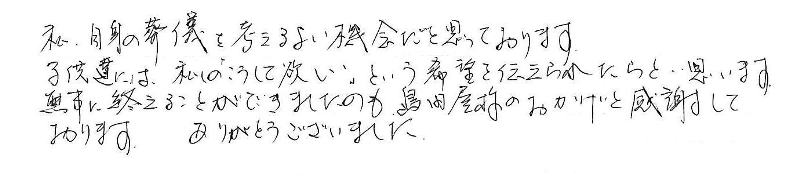 私、自身の葬儀を考えるよい機会だと思っております。
子供達には、私の「こうして欲しい」という希望を伝えられたらと‥思います。
無事に終えることができましたのも、島田屋様のおかげと感謝して
おります。 ありがとうございました。